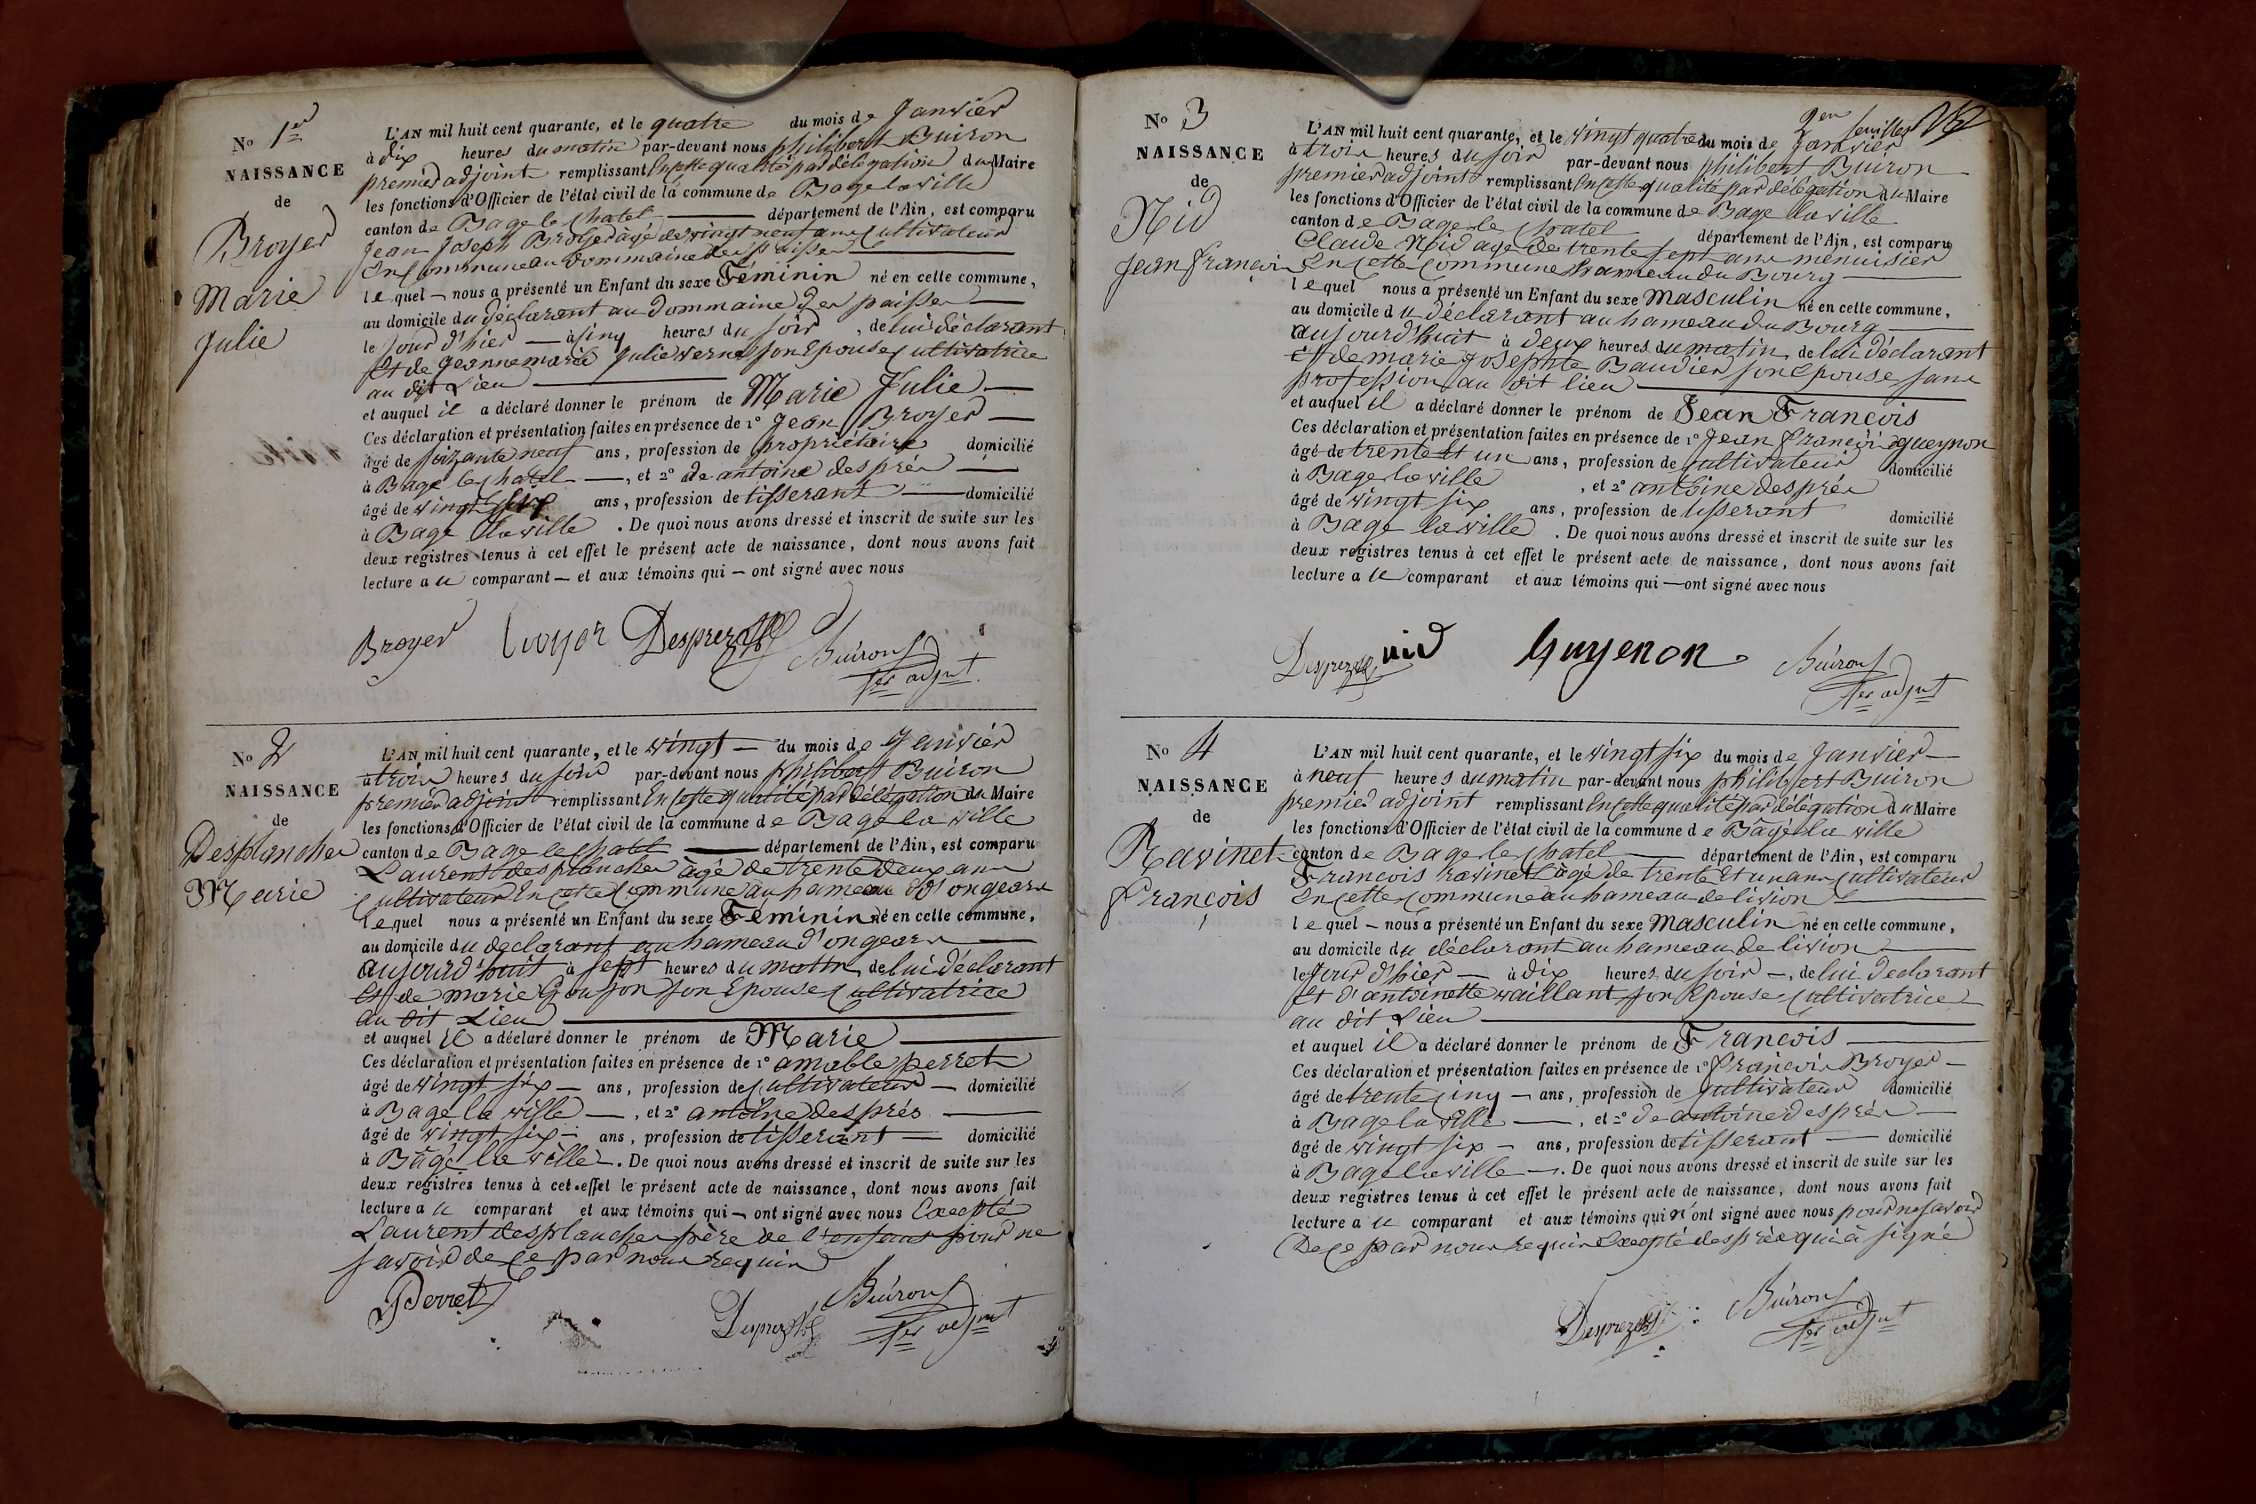 No 1er
NAISSANCE
de
Broyer
Marie
Julie
L'AN mil huit cent quarante, et le quatre du mois de Janvier
à dix heures du matin par-devant nous philibert Buiron
premier adjoint remplissant En cette qualité par délégation du Maire
les fonctions d'Officier de l'état civil de la commune de Bage la ville
canton de Bage le chatel département de l'Ain, est comparu
Jean Joseph Broyer âgé de vingt neuf ans Cultivateur
En Commune au dommaine des paisses
lequel nous a présenté un Enfant du sexe Féminin né en cette commune,
au domicile du déclarant au dommaine des paisses
le Jour d'hier à cinq heures du soir, de lui déclarant
Et de Jeanne marie Julie vernes son Epouse Cultivatrice
au dit Lieu
et auquel il a déclaré donner le prénom de Marie Julie
Ces déclaration et présentation faites en présence de 1° Jean Broyer
âgé de soixante neuf ans, profession de propriétaire domicilié
à Bage le chatel, et 2° de antoine després
âgé de vingt six ans, profession de tisserant domicilié
à Bage la ville. De quoi nous avons dressé et inscrit de suite sur les
deux registres tenus à cet effet le présent acte de naissance, dont nous avons fait
lecture au comparant et aux témoins qui ont signé avec nous
Broyer Desprez Buiron
1er adjnt
No 2
NAISSANCE
de
Desplanches
Marie
L'AN mil huit cent quarante, et le vingt du mois de Janvier
à trois heures du soir par-devant nous philibert Buiron
premier adjoint remplissant En cette qualité par délégation du Maire
les fonctions d'Officier de l'état civil de la commune de Bage la ville
canton de Bage le chatel département de l'Ain, est comparu
Laurent desplanches âgé de trente deux ans
Cultivateur En cette Commune au hameau d'ongears
lequel nous a présenté un Enfant du sexe Féminin né en cette commune,
au domicile du déclarant au hameau d'ongears
aujourd'huit à sept heures du matin de lui déclarant
Et de marie Gouson son Epouse Cultivatrice
au dit Lieu
et auquel il a déclaré donner le prénom de Marie
Ces déclaration et présentation faites en présence de 1° amable perret
âgé de vingt six ans, profession de Cultivateur domicilié
à Bage la ville, et 2° antoine després
âgé de vingt six ans, profession de tisserant domicilié
à Bâgé la ville. De quoi nous avons dressé et inscrit de suite sur les
deux registres tenus à cet effet le présent acte de naissance, dont nous avons fait
lecture au comparant et aux témoins qui ont signé avec nous Excepté
Laurent desplanches père de l'enfant pour ne
savoir de ce par nous requis
Perret Desprez Buiron
1er adjnt
2em feuillet
No 3
NAISSANCE
de
Nid
Jean françois
L'AN mil huit cent quarante, et le vingt quatre du mois de Janvier
à trois heures du soir par-devant nous philibert Buiron
premier adjoint remplissant En cette qualité par délégation du Maire
les fonctions d'Officier de l'état civil de la commune de Bage la ville
canton de Bage le chatel département de l'Ain, est comparu
Claude Nid age de trente sept ans menuisier
En cette Commune hameau du Bourg
lequel nous a présenté un Enfant du sexe Masculin né en cette commune,
au domicile du déclarant au hameau du Bourg
aujourd'huit à deux heures du matin de lui déclarant
Et de marie Josephte Baudier son Epouse sans
profession au dit lieu
et auquel il a déclaré donner le prénom de Jean François
Ces déclaration et présentation faites en présence de 1° Jean françois gueynon
âgé de trente Et un ans, profession de Cultivateur domicilié
à Bage la ville, et 2° antoine després
âgé de vingt six ans, profession de tisserant domicilié
à Bage la ville. De quoi nous avons dressé et inscrit de suite sur les
deux registres tenus à cet effet le présent acte de naissance, dont nous avons fait
lecture au comparant et aux témoins qui ont signé avec nous
Desprez nid Guyenon Buiron
1er adjnt
No 4
NAISSANCE
de
Ravinet
François
L'AN mil huit cent quarante, et le vingt six du mois de Janvier
à neuf heures du matin par-devant nous philibert Buiron
premier adjoint remplissant En cette qualité par délégation du Maire
les fonctions d'Officier de l'état civil de la commune de Bâgé la ville
canton de Bage le chatel département de l'Ain, est comparu
Francois ravinet âgé de trente Et un ans Cultivateur
En cette Commune au hameau de livion
lequel nous a présenté un Enfant du sexe Masculin né en cette commune,
au domicile du déclarant au hameau de livion
le Jour d'hier à dix heures du soir, de lui déclarant
Et d'antoinette vaillant son Epouse Cultivatrice
au dit Lieu
et auquel il a déclaré donner le prénom de Francois
Ces déclaration et présentation faites en présence de 1° françois Broyer
âgé de trente cinq ans, profession de Cultivateur domicilié
à Bage la ville, et 2° de antoine després
âgé de vingt six ans, profession de tisserant domicilié
à Bage la ville. De quoi nous avons dressé et inscrit de suite sur les
deux registres tenus à cet effet le présent acte de naissance, dont nous avons fait
lecture au comparant et aux témoins qui n'ont signé avec nous pour ne savoir
De ce par nous requis Excepté després qui à signé
Desprez Buiron
1er adjnt